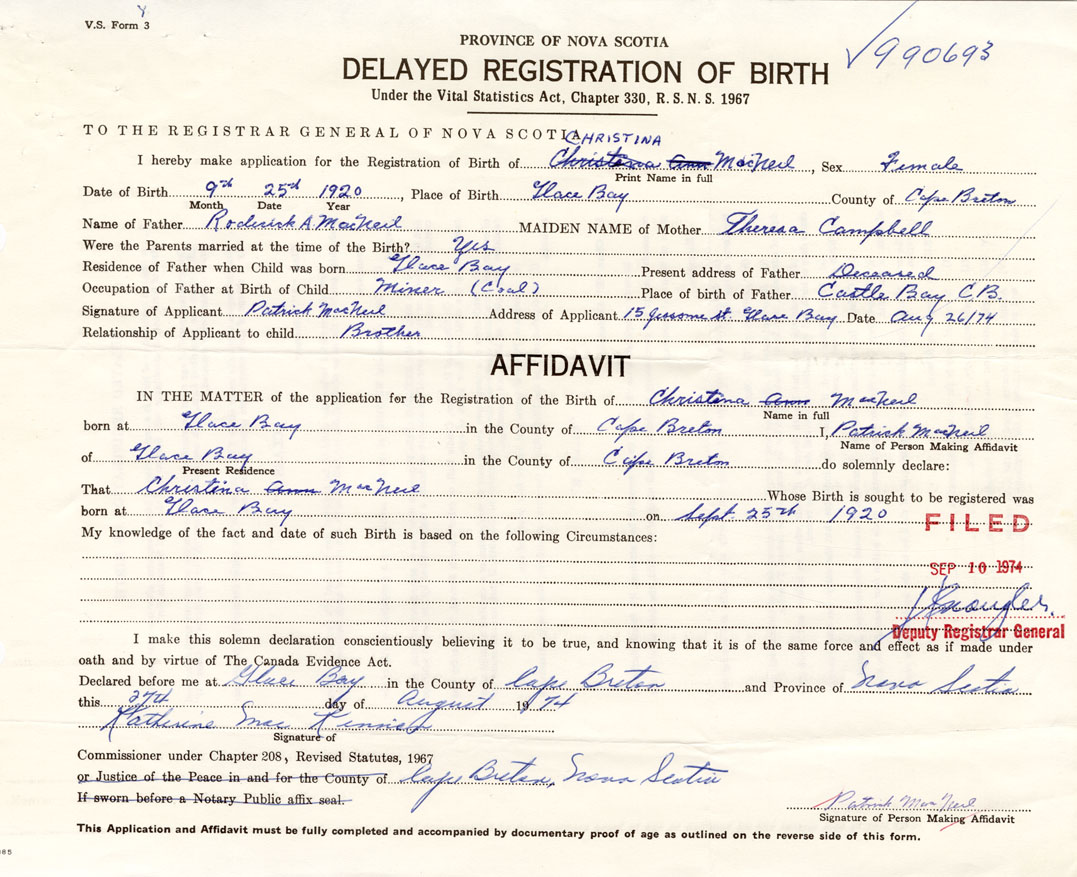 V.S. Form 3
990693
PROVINCE OF NOVA SCOTIA
DELAYED REGISTRATION OF BIRTH
Under the Vital Statistics Act, Chapter 330, R. S. N. S. 1967
TO THE REGISTRAR GENERAL OF NOVA SCOTIA
CHRISTINA
I hereby make application for the Registration of Birth of Christena Ann MacNeil, Sex Female
Print Name in full
Date of Birth 9th 25th 1920, Place of Birth Glace Bay County of Cape Breton
Month Date Year
Name of Father Roderick A. MacNeil MAIDEN NAME of Mother Theresa Campbell
Were the Parents married at the time of the Birth? Yes
Residence of Father when Child was born Glace Bay Present address of Father Deceased
Occupation of Father at Birth of Child Miner (Coal) Place of birth of Father Castle Bay C.B.
Signature of Applicant Patrick MacNeil Address of Applicant 15 St. Glace Bay Date Aug 26/74
Relationship of Applicant to child Brother
AFFIDAVIT
IN THE MATTER of the application for the Registration of the Birth of Christena Ann MacNeil
Name in full
born at Glace Bay in the County of Cape Breton I, Patrick MacNeil
Name of Person Making Affidavit
of Glace Bay in the County of Cape Breton do solemnly declare:
Present Residence
That Christina Ann MacNeil Whose Birth is sought to be registered was
born at Glace Bay on Sept. 25th 1920
FILED
My knowledge of the fact and date of such Birth is based on the following Circumstances:
SEP 10 1974
Deputy Registrar General
I make this solemn declaration conscientiously believing it to be true, and knowing that it is of the same force and effect as if made under
oath and by virtue of The Canada Evidence Act.
Declared before me at Glace Bay in the County of Cape Breton and Province of Nova Scotia
this 27th day of August 1974
Katherine Mac Kinnon
Signature of
Commissioner under Chapter 208, Revised Statutes, 1967
or Justice of the Peace in and for the County of Cape Breton, Nova Scotia
If sworn before a Notary Public affix seal.
Patrick MacNeil
Signature of Person Making Affidavit
This Application and Affidavit must be fully completed and accompanied by documentary proof of age as outlined on the reverse side of this form.